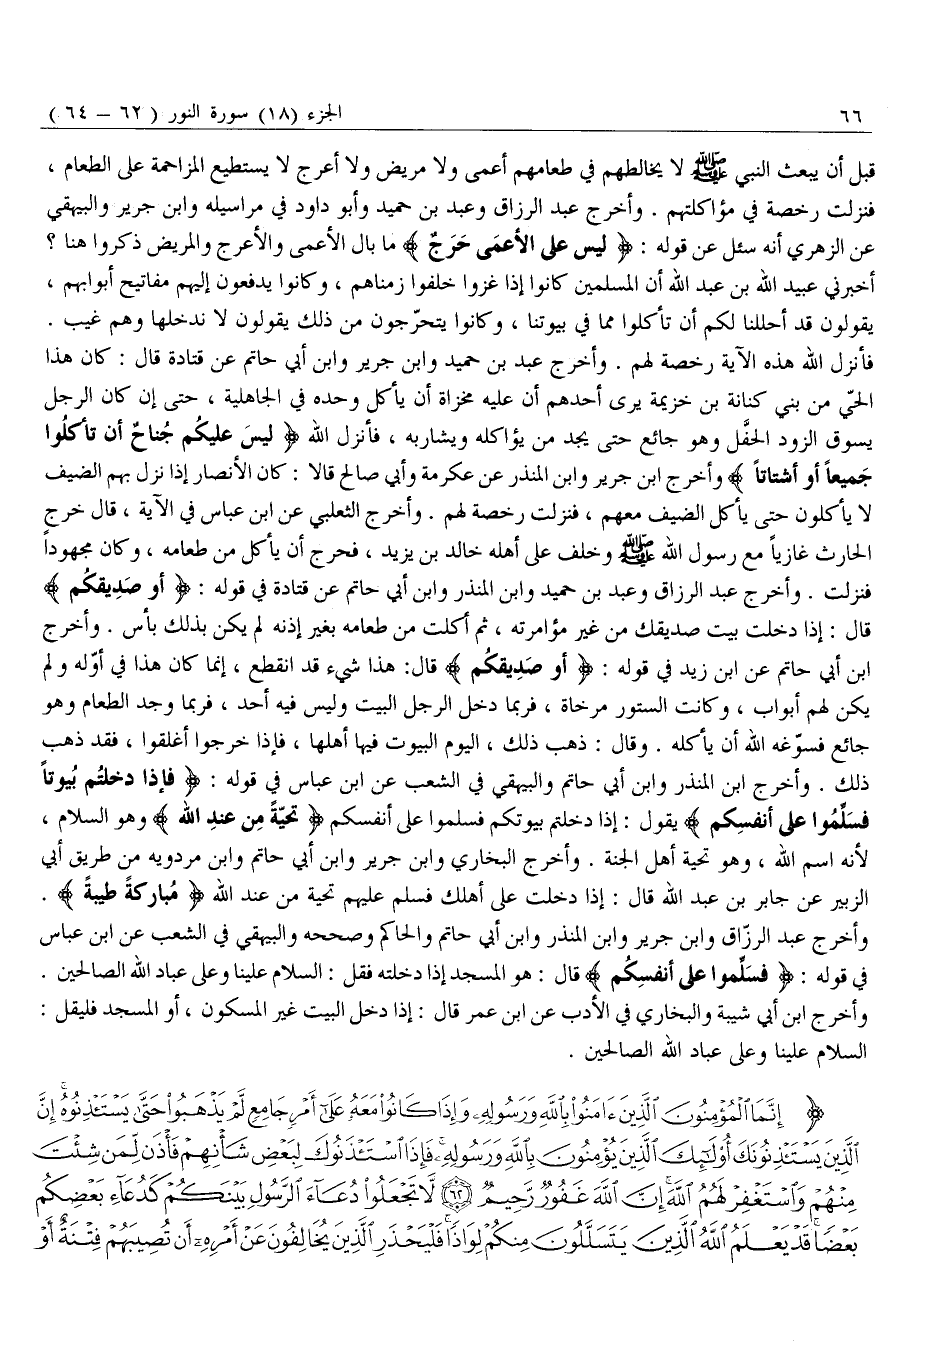 ٦٦ الجزء (١٨) سورة النور ( ٦٢ – ٦٤ )
قبل أن يبعث النبي ﷺ لا يخالطهم في طعامهم أعمى ولا مريض ولا أعرج لا يستطيع المزاحمة على الطعام ،
فنزلت رخصة في مؤاكلتهم . وأخرج عبد الرزاق وعبد بن حميد وأبو داود في مراسيله وابن جرير والبيهقي
عن الزهري أنه سئل عن قوله : ﴿ ليس على الأعمَى حَرَجٌ ﴾ ما بال الأعمى والأعرج والمريض ذكروا هنا ؟
أخبرني عبيد الله بن عبد الله أن المسلمين كانوا إذا غزوا خلفوا زمناهم ، وكانوا يدفعون إليهم مفاتيح أبوابهم ،
يقولون قد أحللنا لكم أن تأكلوا مما في بيوتنا ، وكانوا يتحرّجون من ذلك يقولون لا ندخلها وهم غيب .
فأنزل الله هذه الآية رخصة لهم . وأخرج عبد بن حميد وابن جرير وابن أبي حاتم عن قتادة قال : كان هذا
الحيّ من بني كنانة بن خزيمة يرى أحدهم أن عليه مخزاة أن يأكل وحده في الجاهلية ، حتى إن كان الرجل
يسوق الزود الحفَّل وهو جائع حتى يجد من يؤاكله ويشاربه ، فأنزل الله ﴿ ليسَ عليكُم جُناحٌ أن تأكلُوا
جَميعاً أو أشتاتاً ﴾ وأخرج ابن جرير وابن المنذر عن عكرمة وأبي صالح قالا : كان الأنصار إذا نزل بهم الضيف
لا يأكلون حتى يأكل الضيف معهم ، فنزلت رخصة لهم . وأخرج الثعلبي عن ابن عباس في الآية ، قال خرج
الحارث غازياً مع رسول الله ﷺ وخلف على أهله خالد بن يزيد ، فحرج أن يأكل من طعامه ، وكان مجهوداً
فنزلت . وأخرج عبد الرزاق وعبد بن حميد وابن المنذر وابن أبي حاتم عن قتادة في قوله : ﴿ أو صَدِيقكُم ﴾
قال : إذا دخلت بيت صديقك من غير مؤامرته ، ثم أكلت من طعامه بغير إذنه لم يكن بذلك بأس . وأخرج
ابن أبي حاتم عن ابن زيد في قوله : ﴿ أو صَدِيقكُم ﴾ قال: هذا شيء قد انقطع ، إنما كان هذا في أوّله ولم
يكن لهم أبواب ، وكانت الستور مرخاة ، فربما دخل الرجل البيت وليس فيه أحد ، فربما وجد الطعام وهو
جائع فسوّغه الله أن يأكله . وقال : ذهب ذلك ، اليوم البيوت فيها أهلها ، فإذا خرجوا أغلقوا ، فقد ذهب
ذلك . وأخرج ابن المنذر وابن أبي حاتم والبيهقي في الشعب عن ابن عباس في قوله : ﴿ فإذا دخلتُم بُيوتاً
فسَلِّمُوا على أنفسِكم ﴾ يقول : إذا دخلتم بيوتكم فسلموا على أنفسكم ﴿ تحيّةً مِن عندِ الله ﴾ وهو السلام ،
لأنه اسم الله ، وهو تحية أهل الجنة . وأخرج البخاري وابن جرير وابن أبي حاتم وابن مردويه من طريق أبي
الزبير عن جابر بن عبد الله قال : إذا دخلت على أهلك فسلم عليهم تحية من عند الله ﴿ مُباركةً طيبةً ﴾ .
وأخرج عبد الرزّاق وابن جرير وابن المنذر وابن أبي حاتم والحاكم وصححه والبيهقي في الشعب عن ابن عباس
في قوله : ﴿ فسَلِّموا على أنفسِكُم ﴾ قال : هو المسجد إذا دخلته فقل : السلام علينا وعلى عباد الله الصالحين .
وأخرج ابن أبي شيبة والبخاري في الأدب عن ابن عمر قال : إذا دخل البيت غير المسكون ، أو المسجد فليقل :
السلام علينا وعلى عباد الله الصالحين .
﴿ إِنَّمَا ٱلْمُؤْمِنُونَ ٱلَّذِينَ ءَامَنُوا۟ بِٱللَّهِ وَرَسُولِهِۦ وَإِذَا كَانُوا۟ مَعَهُۥ عَلَىٰٓ أَمْرٍ جَامِعٍ لَّمْ يَذْهَبُوا۟ حَتَّىٰ يَسْتَـْٔذِنُوهُ ۚ إِنَّ
ٱلَّذِينَ يَسْتَـْٔذِنُونَكَ أُو۟لَـٰٓئِكَ ٱلَّذِينَ يُؤْمِنُونَ بِٱللَّهِ وَرَسُولِهِۦ ۚ فَإِذَا ٱسْتَـْٔذَنُوكَ لِبَعْضِ شَأْنِهِمْ فَأْذَن لِّمَن شِئْتَ
مِنْهُمْ وَٱسْتَغْفِرْ لَهُمُ ٱللَّهَ ۚ إِنَّ ٱللَّهَ غَفُورٌ رَّحِيمٌ ﴿٦٢﴾ لَّا تَجْعَلُوا۟ دُعَآءَ ٱلرَّسُولِ بَيْنَكُمْ كَدُعَآءِ بَعْضِكُم
بَعْضًا ۚ قَدْ يَعْلَمُ ٱللَّهُ ٱلَّذِينَ يَتَسَلَّلُونَ مِنكُمْ لِوَاذًا ۚ فَلْيَحْذَرِ ٱلَّذِينَ يُخَالِفُونَ عَنْ أَمْرِهِۦٓ أَن تُصِيبَهُمْ فِتْنَةٌ أَوْ